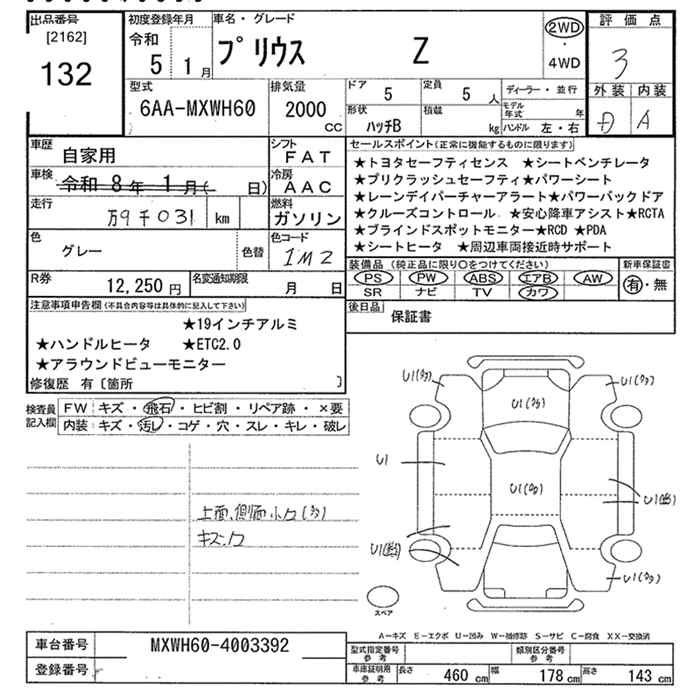 出品番号 初度登録年月 車名・グレード 評価点
[2162] 令和 プリウス Z 2WD 3
132 5 1月 ・
4WD
型式 排気量 ドア 5 定員 5 人 ディーラー・並行 外装 内装
6AA-MXWH60 2000 形状 積載 モデル年式 年 D A
CC ハッチB kg ハンドル 左・右
車歴 自家用 シフト FAT セールスポイント(正常に機能するものに限ります)
車検 令和 8年 1月( 日) 冷房 AAC ★トヨタセーフティセンス ★シートベンチレータ
★プリクラッシュセーフティ★パワーシート
走行 万9千031 km 燃料 ガソリン ★レーンデイパーチャーアラート★パワーバックドア
★クルーズコントロール ★安心降車アシスト★RCTA
色 グレー 色替 色コード 1M2 ★ブラインドスポットモニター★RCD ★PDA
★シートヒータ ★周辺車両接近時サポート
R券 12,250円 名変通知期限 月 日 装備品(純正品に限り○をつけてください) 新車保証書
PS PW ABS エアB AW 有・無
SR ナビ TV カワ
注意事項申告欄(不具合内容等は具体的に記入して下さい) 後日品 保証書
★19インチアルミ
★ハンドルヒータ ★ETC2.0
★アラウンドビューモニター
修復歴 有〔箇所 〕
検査員記入欄 FW キズ・飛石・ヒビ割・リペア跡・×要
内装 キズ・汚レ・コゲ・穴・スレ・キレ・破レ
U1
U1
U1
上面、側面
キズ
U1
U1
U1
U1
U1
スペア
A－キズ E－エクボ U－凹み W－補修跡 S－サビ C－腐食 XX－交換済
車台番号 MXWH60-4003392 型式指定番号 参考 類別区分番号 参考
登録番号 車庫証明用 参考 長さ 460 cm 幅 178 cm 高さ 143 cm